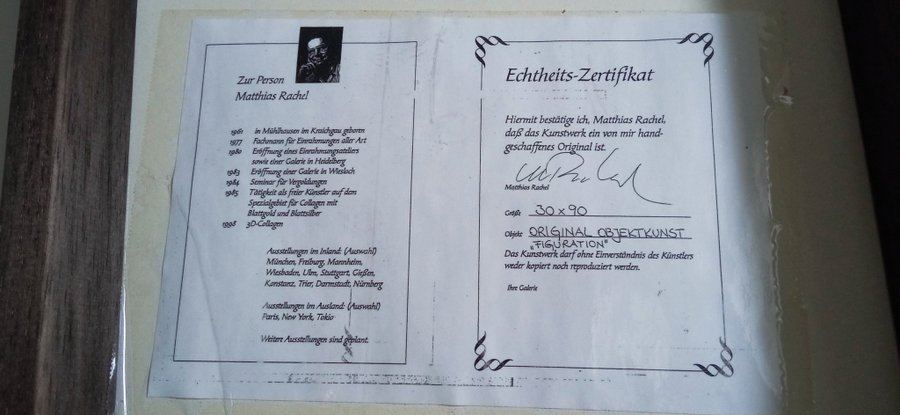 Zur Person
Matthias Rachel
1961 in Mühlhausen im Kraichgau geboren
1977 Fachmann für Einrahmungen aller Art
1980 Eröffnung eines Einrahmungsateliers
sowie einer Galerie in Heidelberg
1983 Eröffnung einer Galerie in Wiesloch
1984 Seminar für Vergoldungen
1985 Tätigkeit als freier Künstler auf dem
Spezialgebiet für Collagen mit
Blattgold und Blattsilber
1998 3D-Collagen
Ausstellungen im Inland: (Auswahl)
München, Freiburg, Mannheim,
Wiesbaden, Ulm, Stuttgart, Gießen,
Konstanz, Trier, Darmstadt, Nürnberg
Ausstellungen im Ausland: (Auswahl)
Paris, New York, Tokio
Weitere Ausstellungen sind geplant.
Echtheits-Zertifikat
Hiermit bestätige ich, Matthias Rachel,
daß das Kunstwerk ein von mir hand-
geschaffenes Original ist.
Matthias Rachel
Größe 30 x 90
Objekt ORIGINAL OBJEKTKUNST
„FIGURATION"
Das Kunstwerk darf ohne Einverständnis des Künstlers
weder kopiert noch reproduziert werden.
Ihre Galerie